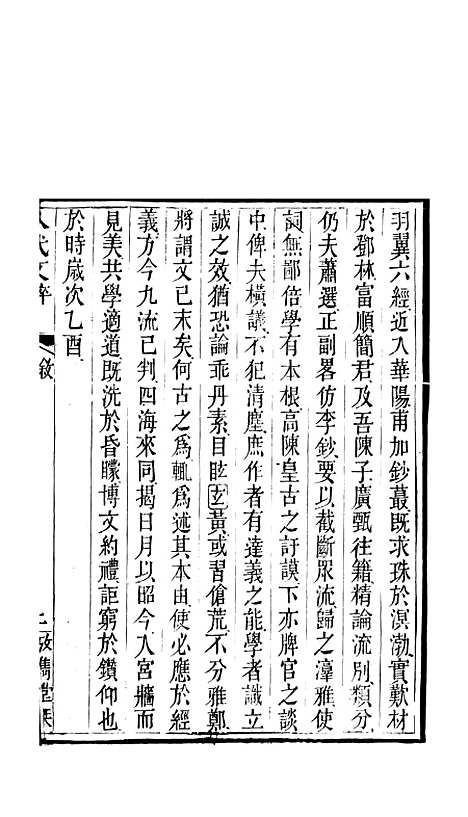 羽翼六經近入華陽甫加鈔蕞既求珠於溟渤實歎材
於鄧林富順簡君及吾陳子廣甄往籍精論流別類分
仍夫蕭選正副畧仿李鈔要以截斷眾流歸之濅雅使
詞無鄙倍學有本根高陳皇古之訏謨下亦牌官之談
中俾夫橫議不犯清塵庶作者有達義之能學者識立
誠之效猶恐論乖丹素目眩玄黃或習傖荒不分雅鄭
將謂文已末矣何古之爲輒爲述其本由使必應於經
義方今九流已判四海來同揭日月以昭今入宮牆而
見美共學適道既洗於昏矇博文約禮詎窮於鑽仰也
於時歲次乙酉
八代文粹 敘